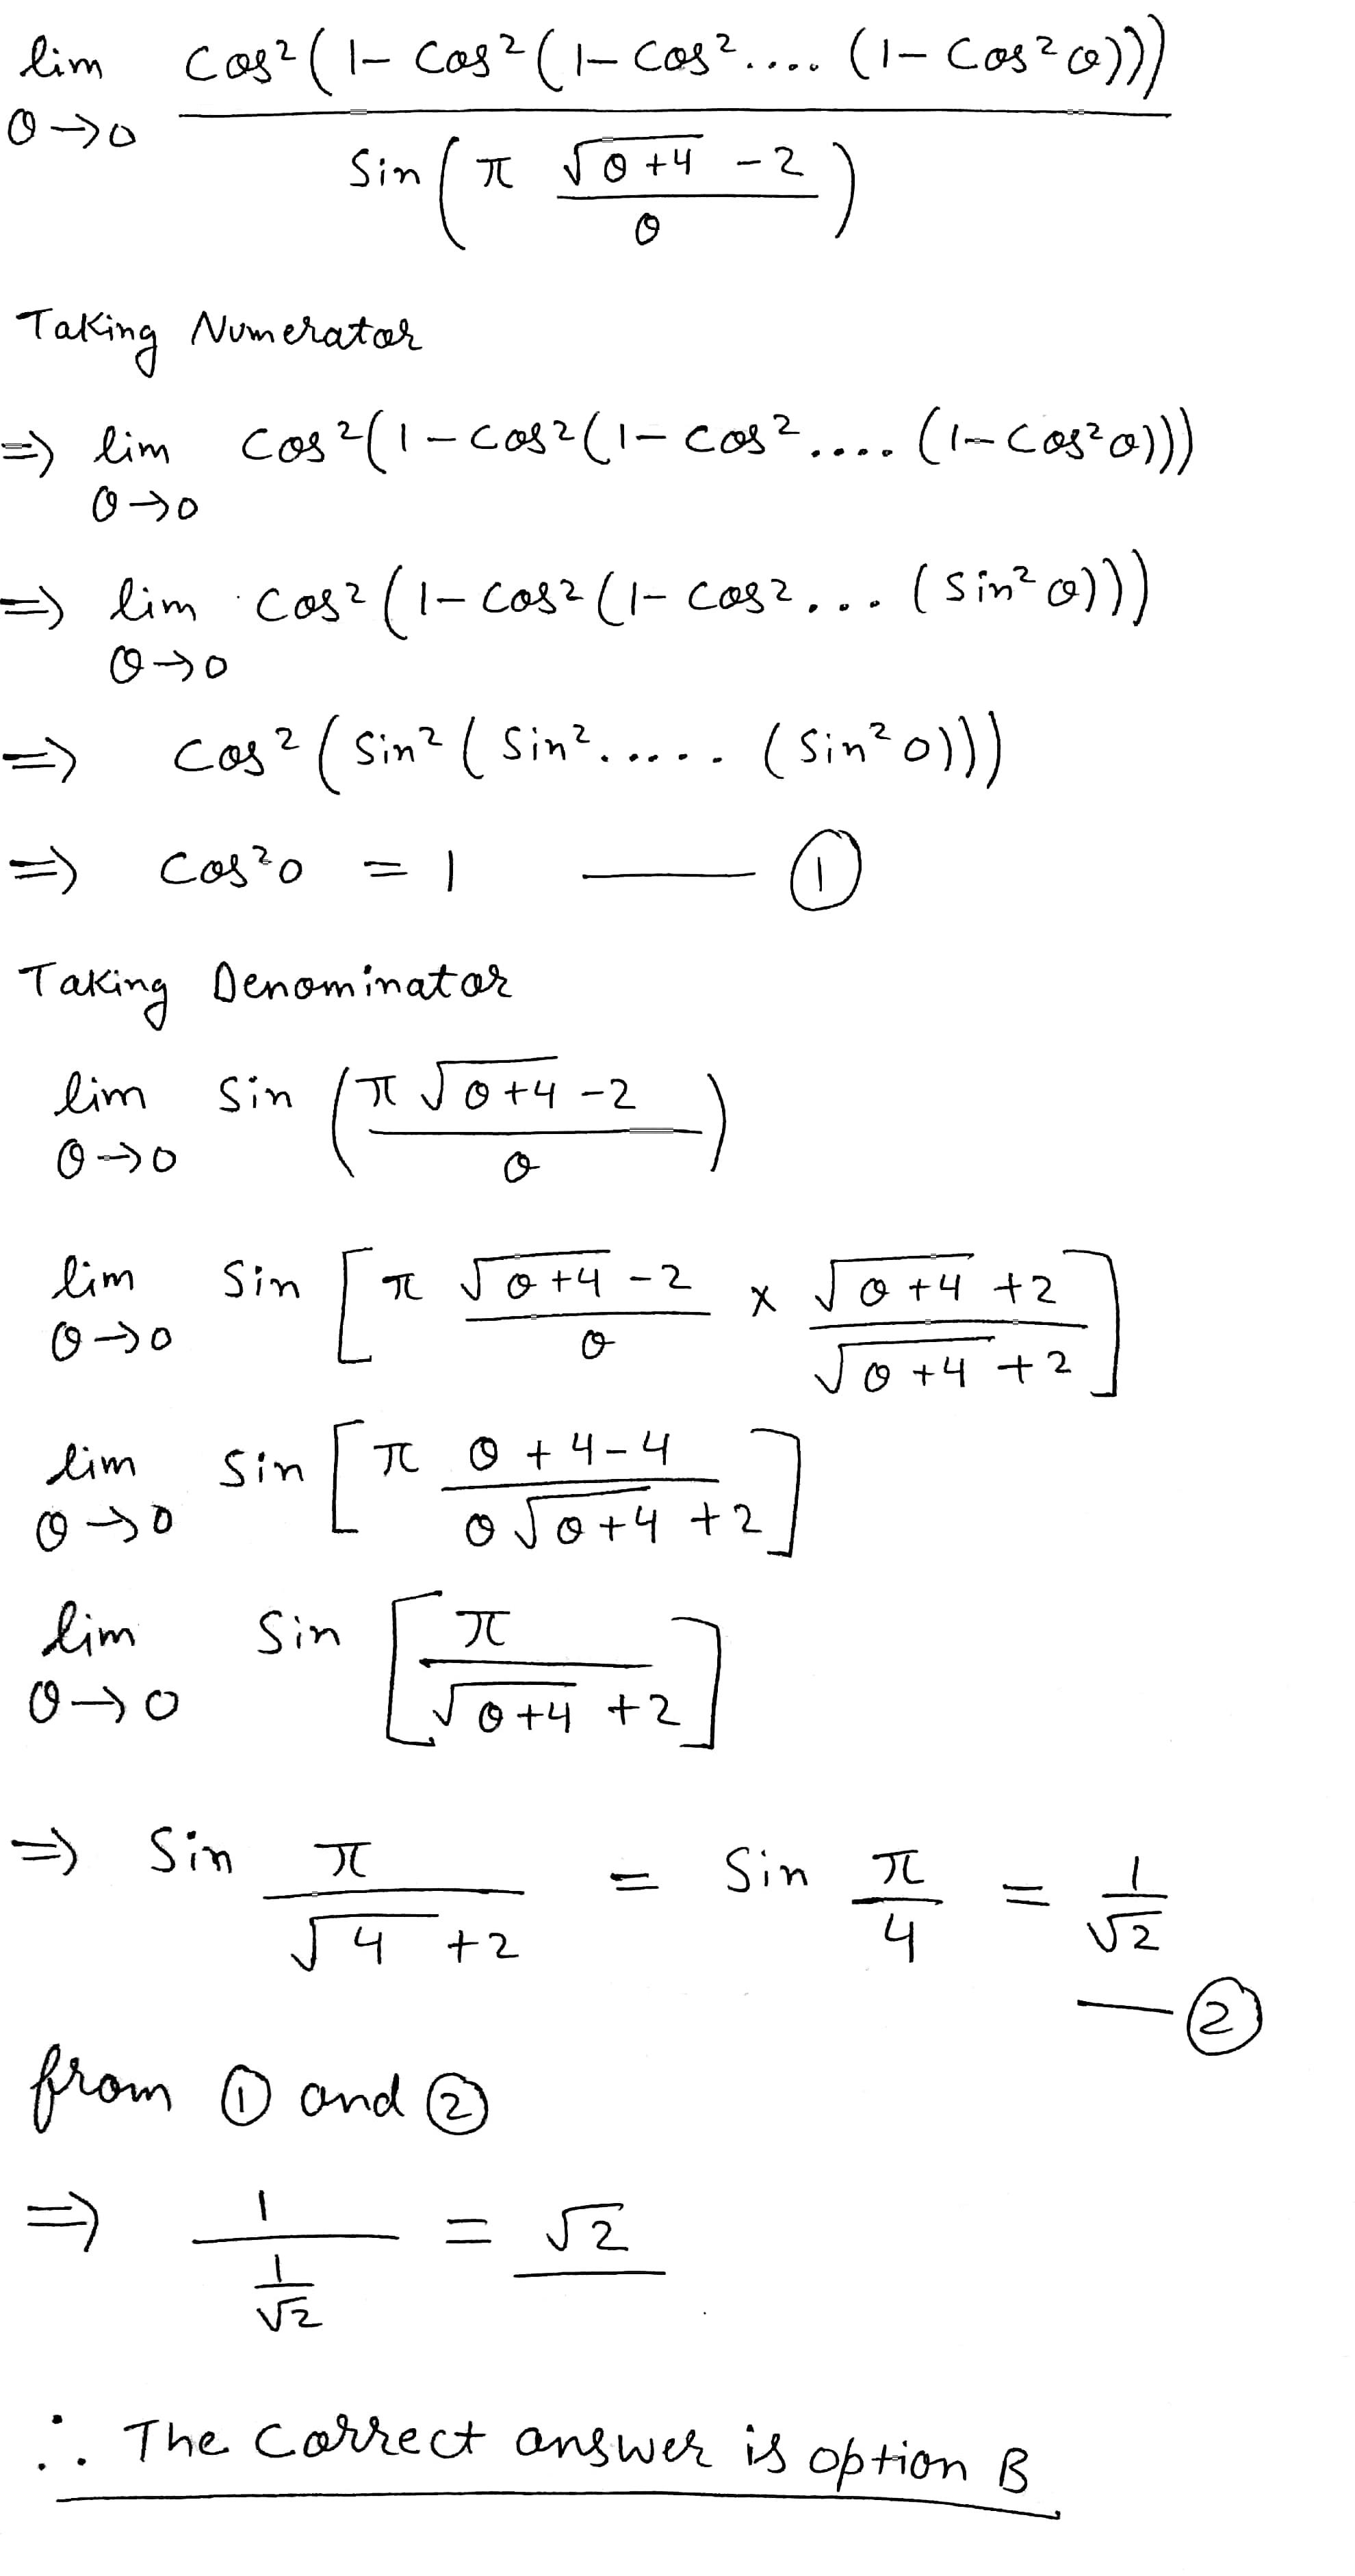 lim Cos²(1- Cos²(1- Cos².... (1- Cos²θ)))
θ→0
Sin(π √θ+4 -2)
θ
Taking Numerator
⇒ lim Cos²(1-Cos²(1- Cos².... (1-Cos²θ)))
θ→0
⇒ lim Cos²(1-Cos²(1-Cos²... (Sin²θ)))
θ→0
⇒ Cos²(Sin²(Sin²..... (Sin²0)))
⇒ Cos²0 = 1 — ①
Taking Denominator
lim Sin (π √θ+4 -2)
θ→0 θ
lim Sin [π √θ+4 -2 × √θ+4 +2]
θ→0 θ √θ+4 +2
lim Sin [π θ+4-4]
θ→0 θ√θ+4 +2
lim Sin [π]
θ→0 √θ+4 +2
⇒ Sin π = Sin π = 1
√4 +2 4 √2
— ②
from ① and ②
⇒ 1 = √2
1
√2
∴ The Correct answer is option B